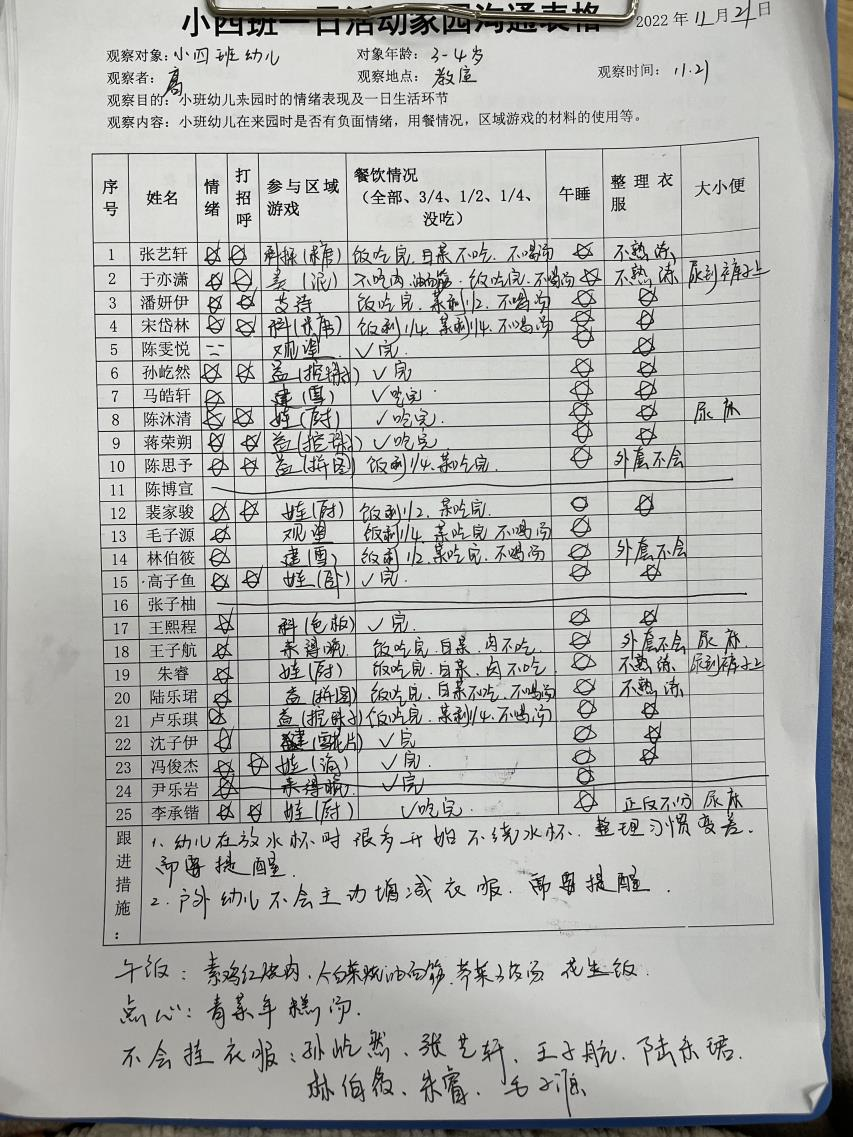 小四班一日活动家园沟通表格 2022年11月21日
观察对象：小四班幼儿 对象年龄：3-4岁
观察者：高 观察地点：教室 观察时间：11.21
观察目的：小班幼儿来园时的情绪表现及一日生活环节
观察内容：小班幼儿在来园时是否有负面情绪，用餐情况，区域游戏的材料的使用等。
序号 姓名 情绪 打招呼 参与区域游戏 餐饮情况（全部、3/4、1/2、1/4、没吃） 午睡 整理衣服 大小便
1 张艺轩 饭吃完.白菜不吃.不喝汤 不熟练
2 于亦潇 美（泥） 不吃肉.油面筋.饭吃完.不喝汤 不熟练 尿到裤子上
3 潘妍伊 饭吃完.菜剩1/2.不喝汤
4 宋岱林 饭剩1/4.菜剩1/4.不喝汤
5 陈雯悦 观望 ✓完
6 孙屹然 ✓完
7 马皓轩 ✓吃完
8 陈沐清 娃（厨） ✓吃完. 尿床
9 蒋荣朔 ✓吃完
10 陈思予 益（拼图） 饭剩1/4.菜吃完. 外套不会
11 陈博宣
12 裴家骏 娃（厨） 饭剩1/2.菜吃完.
13 毛子源 观望 饭剩1/4.菜吃完.不喝汤
14 林伯筱 饭剩1/2.菜吃完.不喝汤 外套不会
15 高子鱼 娃（卧） ✓完.
16 张子柚
17 王熙程 ✓完.
18 王子航 来得晚. 饭吃完.白菜.肉不吃. 外套不会 尿床.
19 朱睿 娃（厨） 饭吃完.白菜.肉不吃. 不熟练 尿到裤子上
20 陆乐珺 益（拼图） 饭吃完.白菜不吃.不喝汤 不熟练
21 卢乐琪 饭吃完.菜剩1/4.不喝汤
22 沈子伊 ✓完
23 冯俊杰 ✓完.
24 尹乐岩 来得晚. ✓完
25 李承锴 娃（厨） ✓吃完. 正反不分 尿床
跟进措施：
1、幼儿在放水杯时很多开始不绕水杯.整理习惯变差.
需要提醒.
2.户外幼儿不会主动增减衣服.需要提醒.
午饭：素鸡红烧肉、大白菜烧油面筋、荠菜豆腐汤 花生饭.
点心：青菜年糕汤.
不会挂衣服：孙屹然、张艺轩、王子航.陆乐珺.
林伯筱、朱睿、毛子源